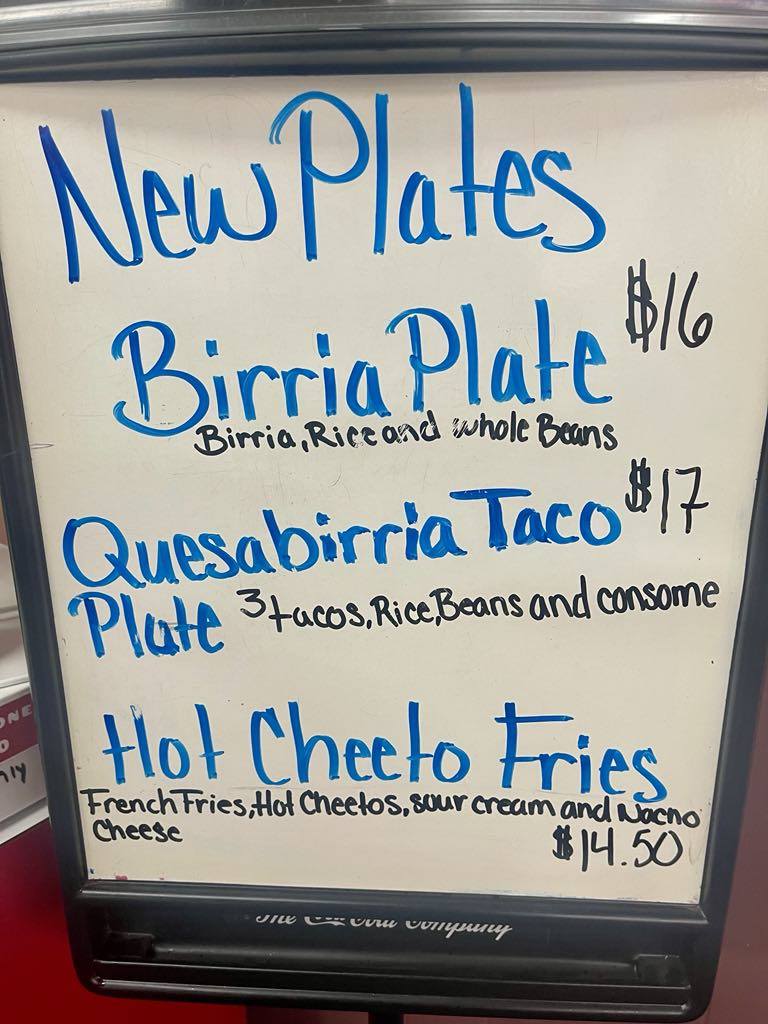 New Plates
$16
Birria Plate
Birria, Rice and whole Beans
$17
Quesabirria Taco
Plate 3 tacos, Rice, Beans and consome
Hot Cheeto Fries
French Fries, Hot Cheetos, sour cream and Nacho
Cheese
$14.50
The Coca-Cola Company
ONE